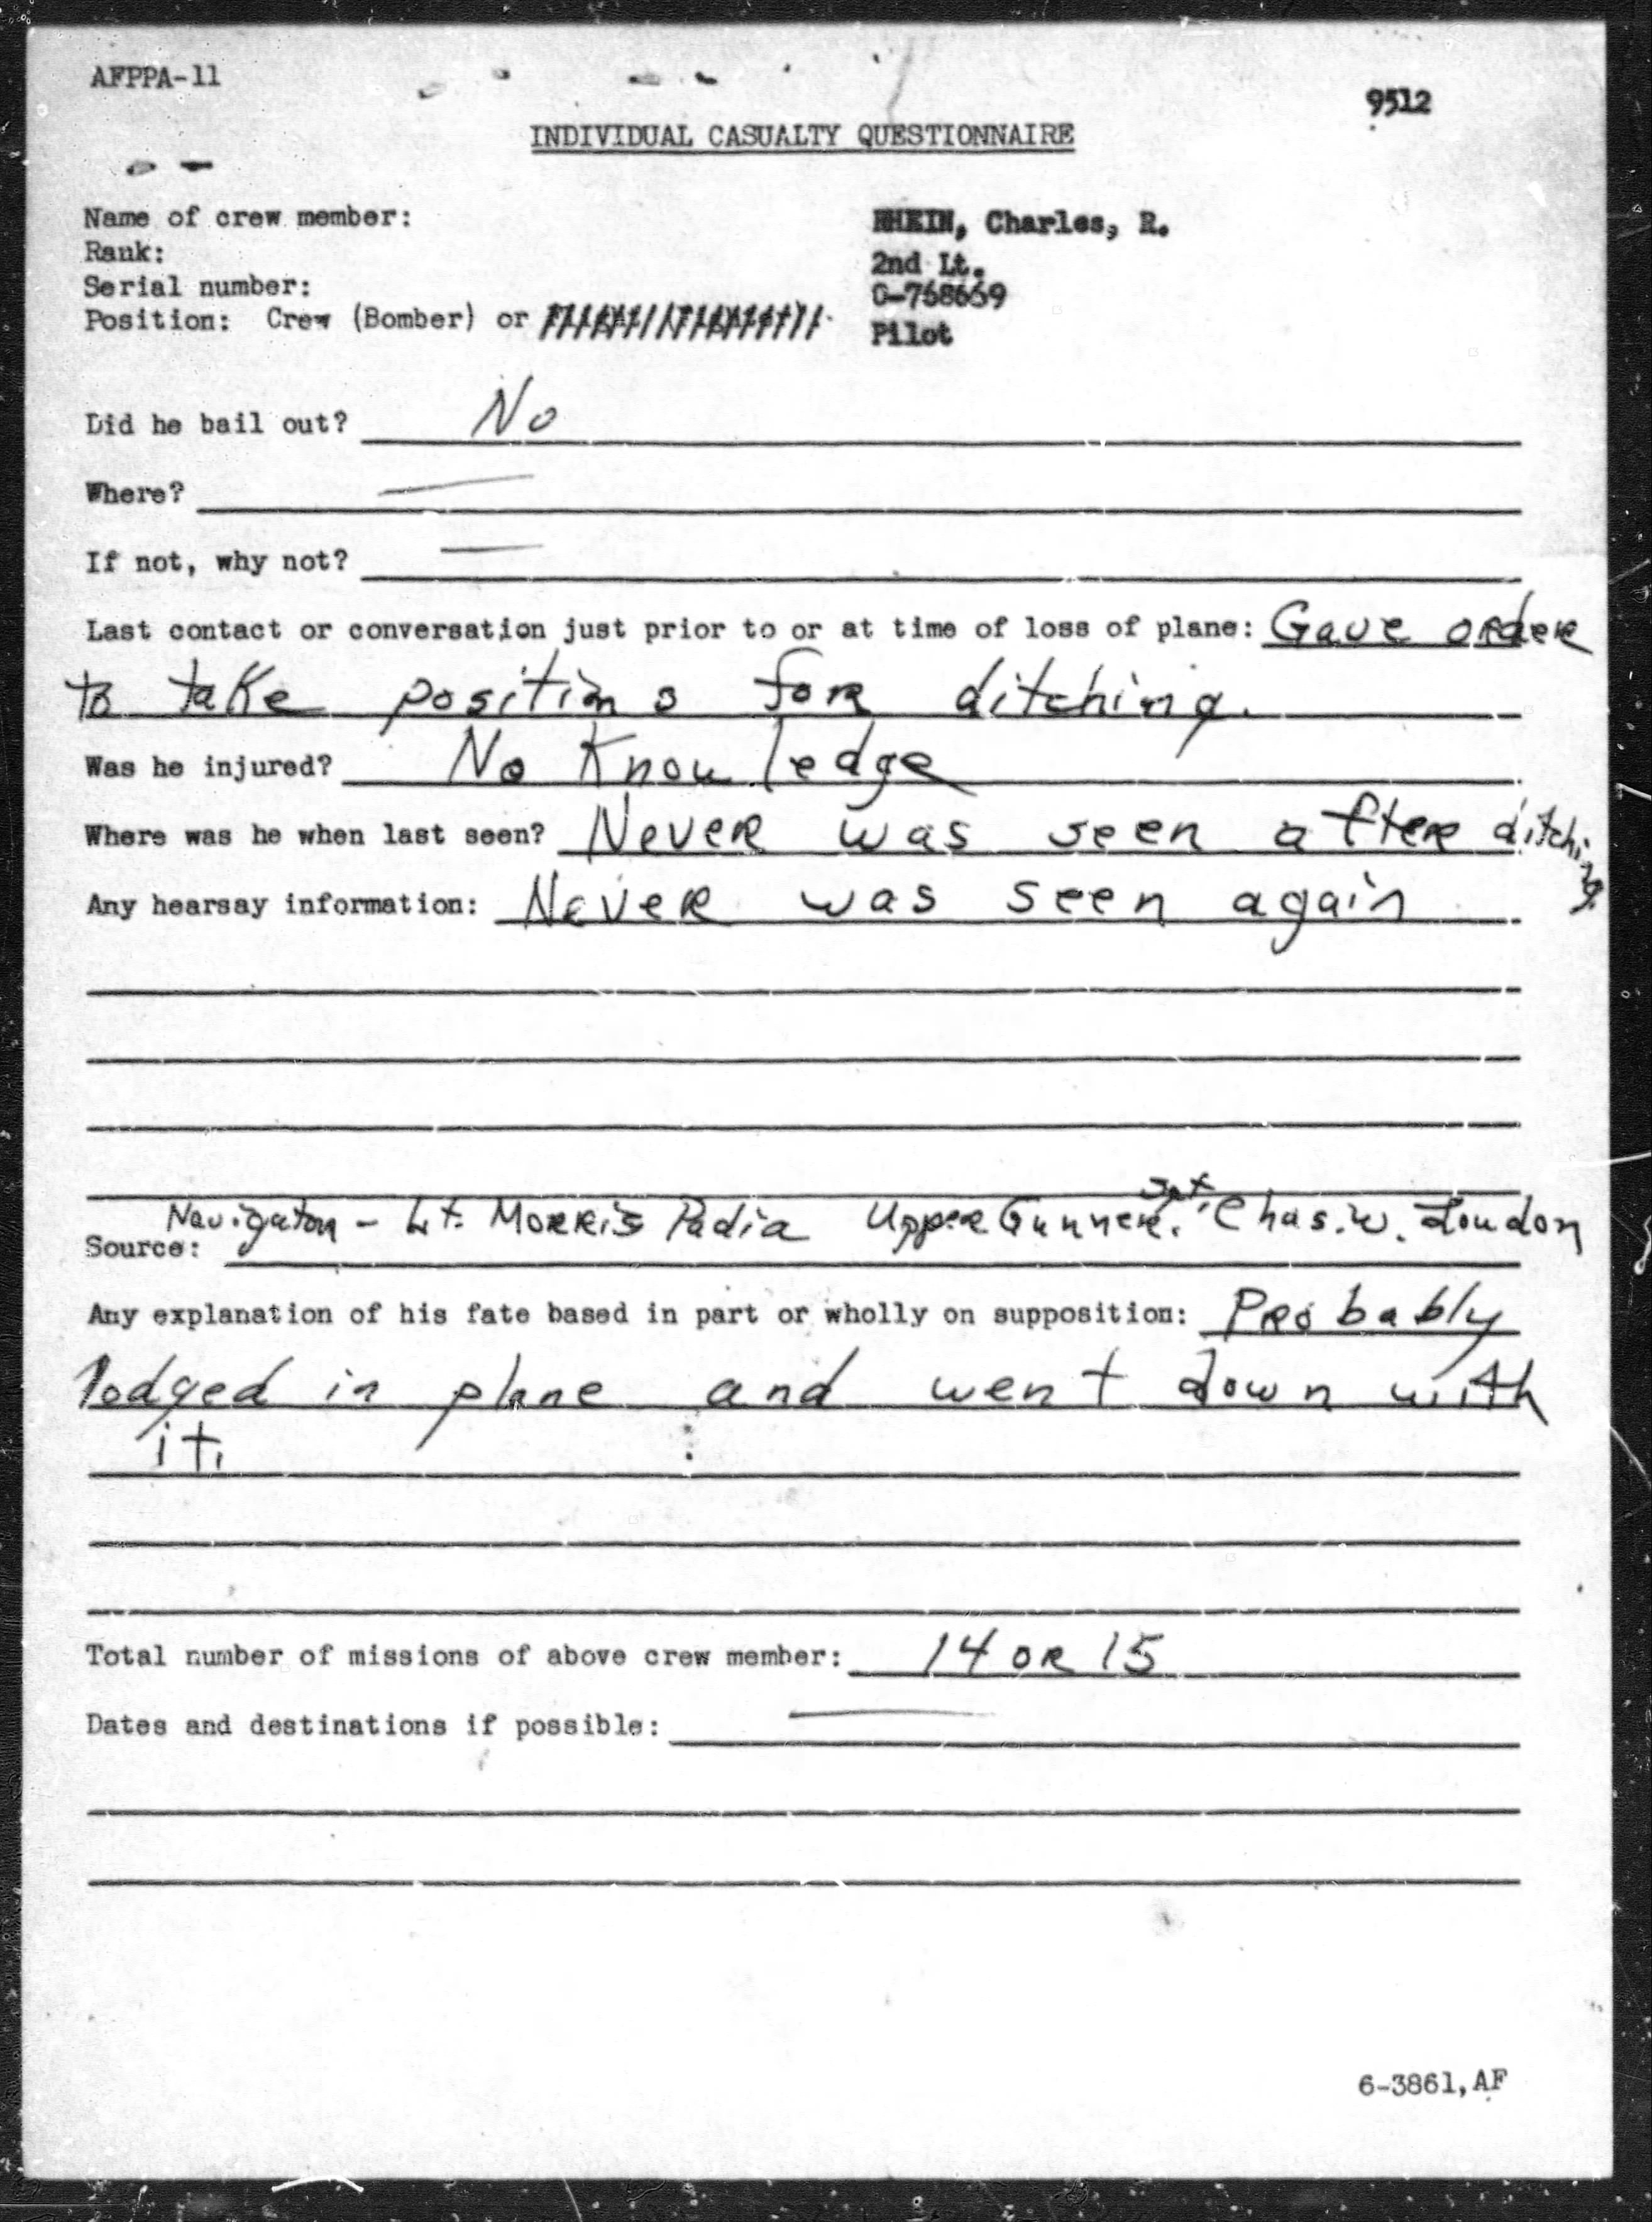 AFPPA-11
9512
INDIVIDUAL CASUALTY QUESTIONNAIRE
Name of crew member: RHEIN, Charles, R.
Rank: 2nd Lt.
Serial number: O-768659
Position: Crew (Bomber) or Pilot
Did he bail out? No
Where? —
If not, why not? —
Last contact or conversation just prior to or at time of loss of plane: Gave order
to take positions for ditching.
Was he injured? No Knowledge
Where was he when last seen? Never was seen after ditching.
Any hearsay information: Never was seen again
Source: Navigator - Lt. Morris Padia Upper Gunner. Sgt. Chas. W. Loudon
Any explanation of his fate based in part or wholly on supposition: Probably
lodged in plane and went down with
it.
Total number of missions of above crew member: 14 OR 15
Dates and destinations if possible: —
6-3861,AF